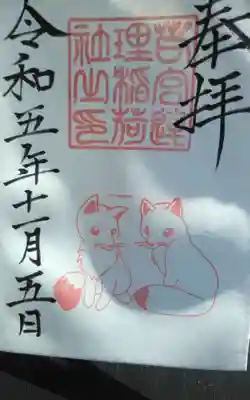 奉拝
若宮連
理稲荷
社之印
令和五年十一月五日